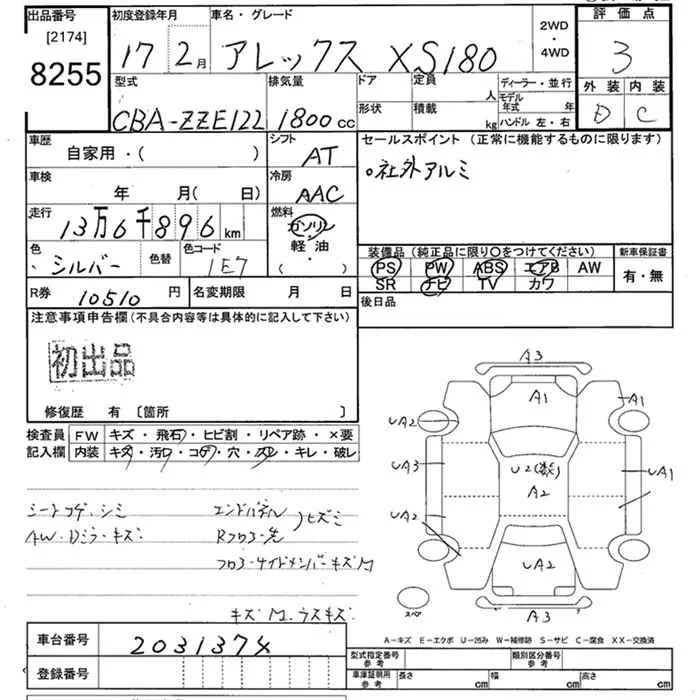 出品番号
[2174]
8255
初度登録年月
17 2月
車名・グレード
アレックス XS180
2WD
・
4WD
評価点
3
外装 内装
D C
型式
CBA-ZZE122
排気量
1800cc
ドア
形状
定員 人
積載 kg
ディーラー・並行
モデル年式 年
ハンドル 左・右
車歴
自家用・( )
シフト
AT
セールスポイント (正常に機能するものに限ります)
○社外アルミ
車検
年 月( 日)
冷房
AAC
走行
13万6千896km
燃料
ガソリン
軽・油
・
( )
色
シルバー
色替
色コード
1E7
装備品 (純正品に限り〇をつけてください)
PS PW ABS エアB AW
SR ナビ TV カワ
新車保証書
有・無
R券 10510円
名変期限 月 日
後日品
注意事項申告欄(不具合内容等は具体的に記入して下さい)
初出品
修復歴 有 〔箇所 〕
検査員
記入欄
FW キズ・飛石・ヒビ割・リペア跡・×要
内装 キズ・汚レ・コゲ・穴・スレ・キレ・破レ
シートコゲ・シミ
AW・Dミラ・キズ
エンドパネル
Rフロアー先
)ヒズミ
フロアー・サイドメンバーキズM
キズM.ラスキズ
A3
A1
A1
UA2
UA3
U2(数)
A2
UA1
UA2
UA2
A3
スペア
A−キズ E−エクボ U−凹み W−補修跡 S−サビ C−腐食 XX−交換済
車台番号 2031374
登録番号
型式指定番号
参考
類別区分番号
参考
車庫証明用
参考
長さ cm
幅 cm
高さ cm